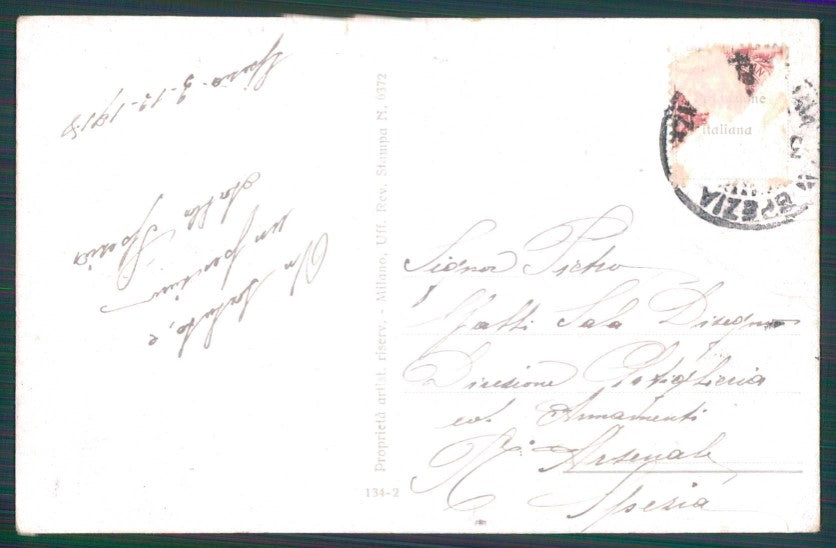 Spezia 3-12-1918
Un saluto, e
un pensiero
dalla Spezia
Proprietà artist. riserv. - Milano, Uff. Rev. Stampa N. 0372
134-2
italiana
SPEZIA
Signor Pietro
Gatti Sala Disegno
Direzione Artiglieria
ed Armamenti
R. Arsenale
Spezia